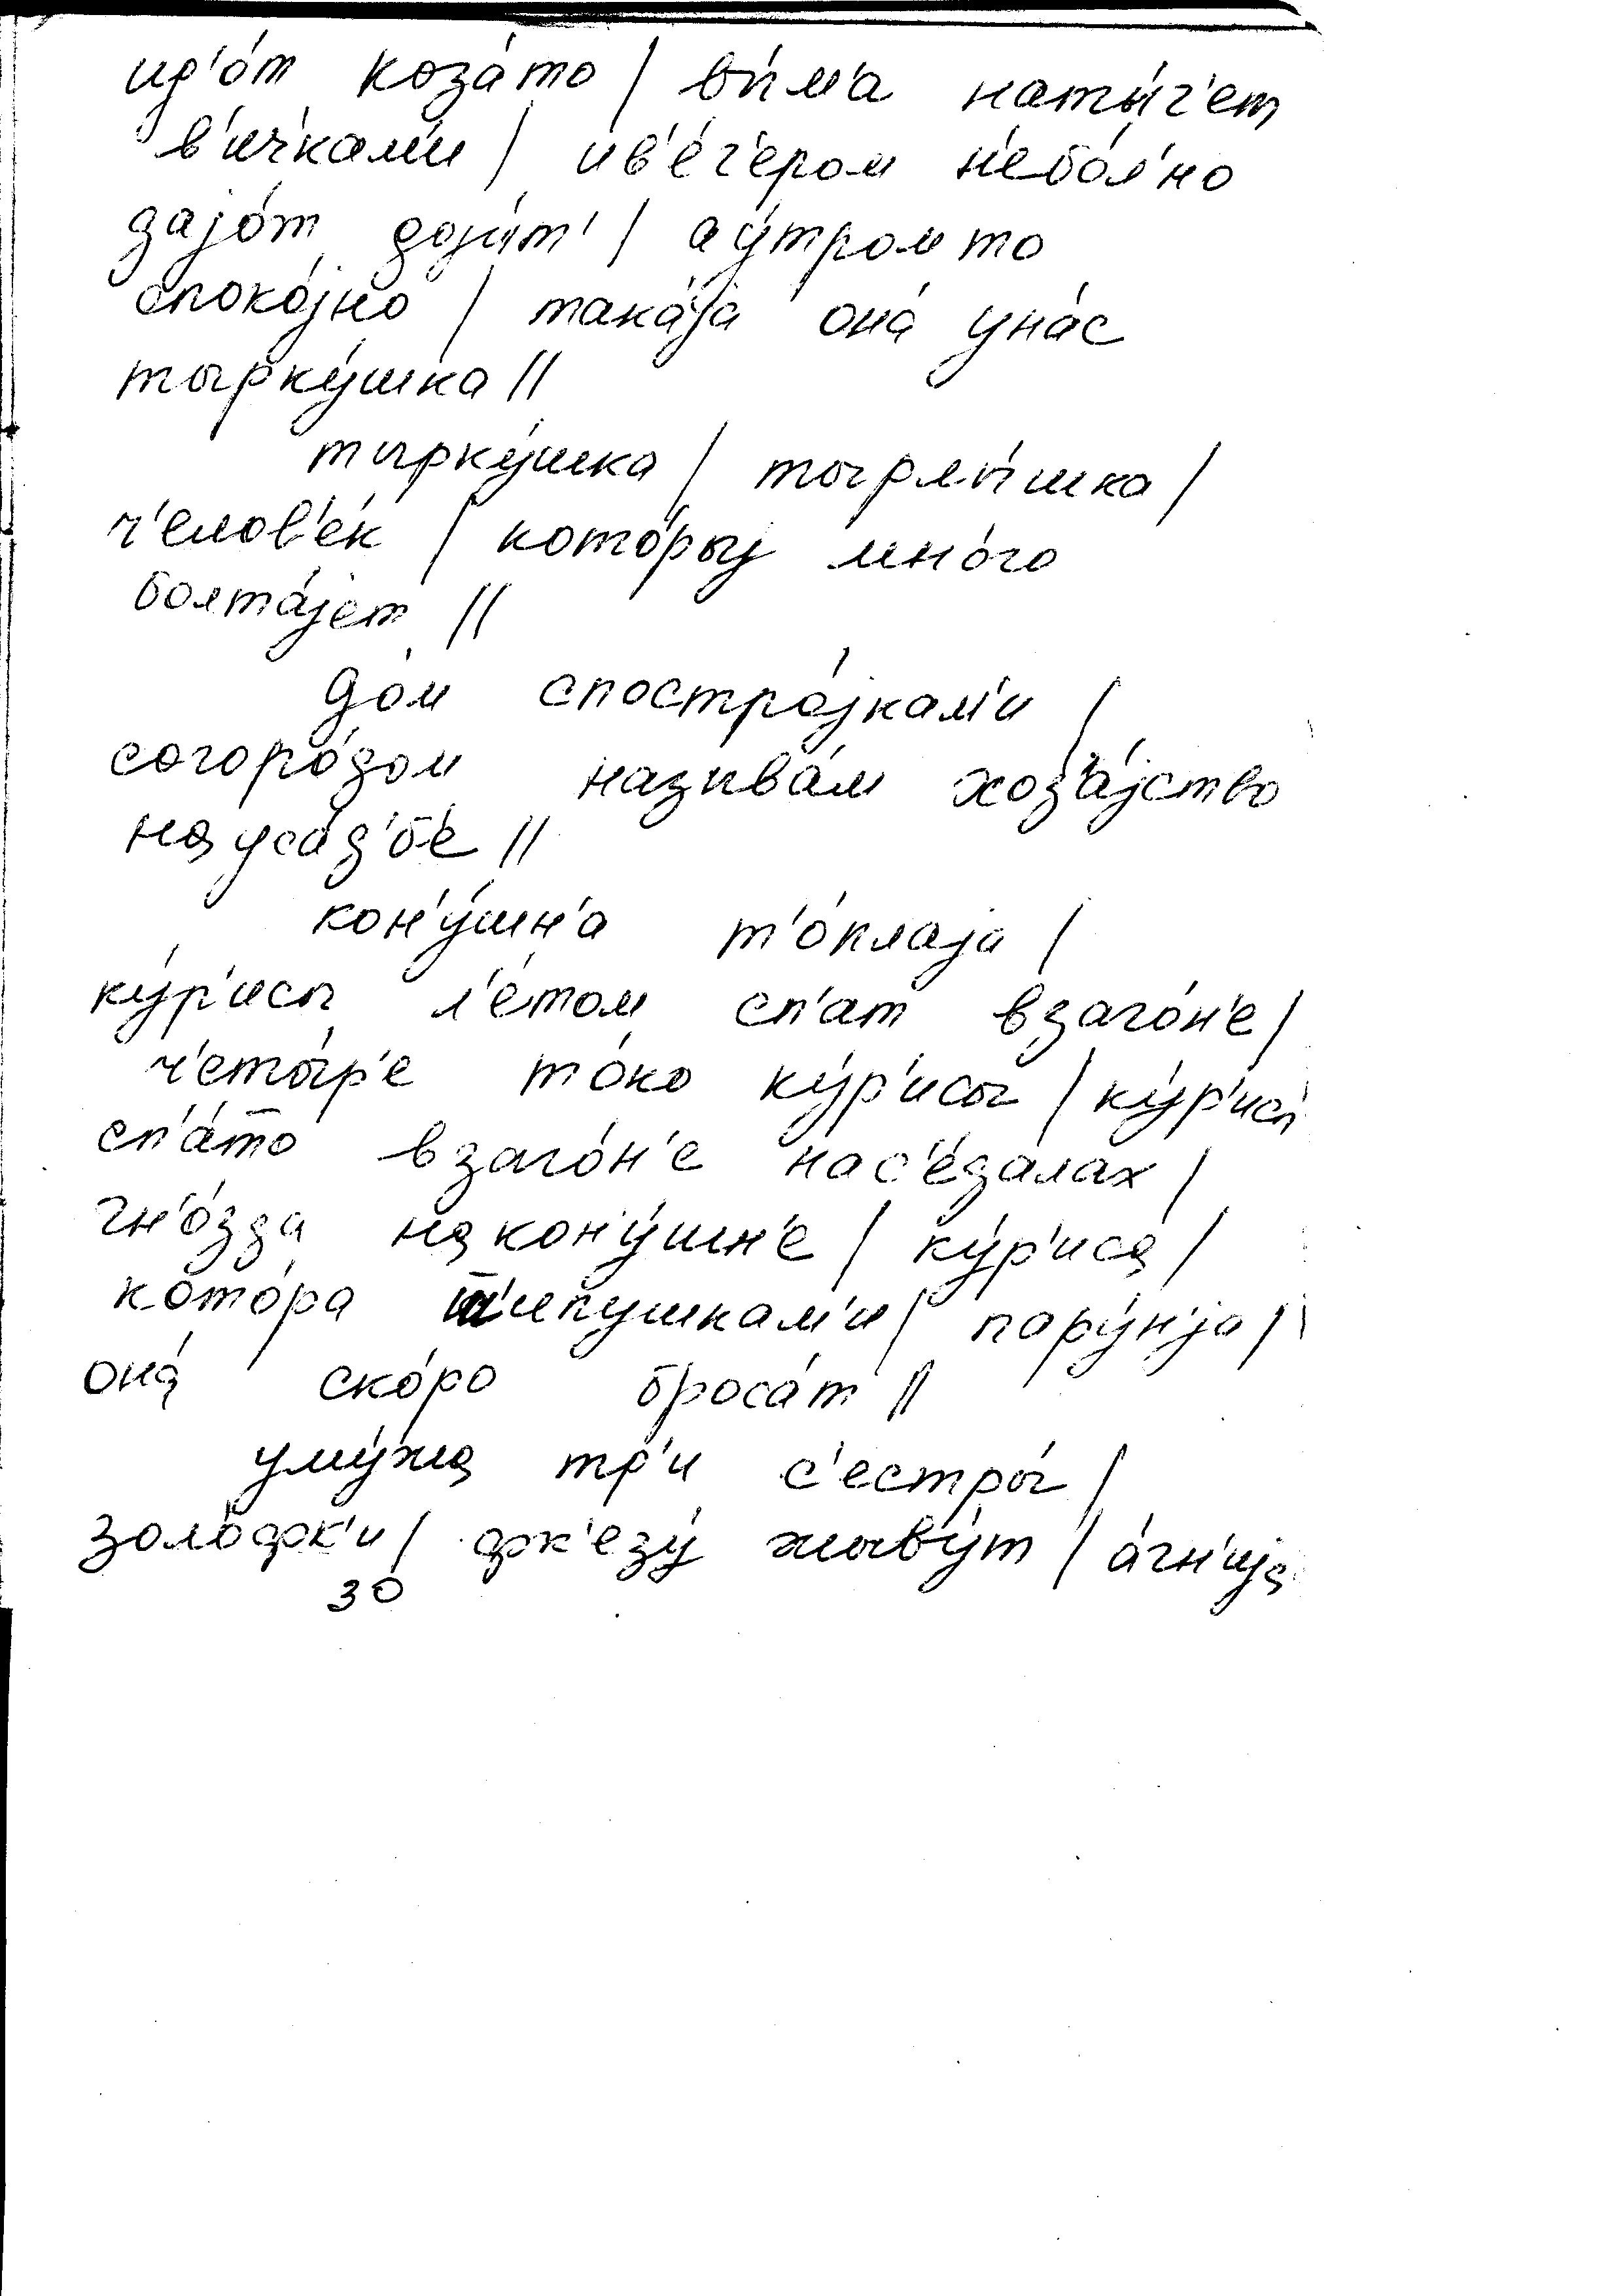 ид'о́т коза́то / ви́м'а наты́ч'ет
в'ич'кам'и / ив'е́ч'ером н'ебо́л'но
дајо́т дојит' / ау́тром то
споко́јно / така́ја она́ уна́с
тырку́шка //
тырку́шка / тырлы́шка /
ч'елов'е́к / кото́рыј мно́го
болта́јет //
до́мспостро́јкам'и /
согоро́дом называ́м хоз'а́јство
науса́д'б'е //
кон'у́шн'а т'о́плаја /
ку́р'исы л'е́том сп'ат взаго́н'е /
ч'еты́р'е то́ко ку́р'исы / ку́р'исы
сп'а́то взаго́н'е нас'е́далах /
гн'о́зда након'у́шн'е / ку́р'иса /
кото́ра т'ипушкам'и / пару́н'ја /
она́ ско́ро броса́т //
уму́жа тр'и с'естры́ /
золо́фк'и / фк'езу́ жыву́т / а́гн'ија
30